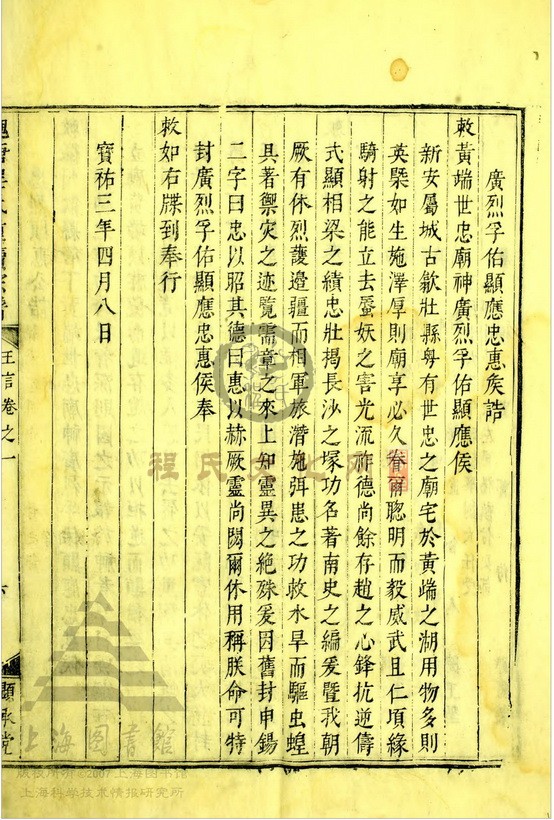 廣烈孚佑顯應忠惠侯誥
敕黃墩世忠廟神廣烈孚佑顯應侯
新安屬城古歙壯縣粤有世忠之廟宅於黃墩之湖用物多則
英槩如生施澤厚則廟享必久眷爾聰明而毅威武且仁頃緣
騎射之能立去蜃妖之害光流祚德尚餘存趙之心鋒抗逆儔
式顯相梁之績忠壯揭長沙之塚功名著南史之編爰暨我朝
厥有休烈護邊疆而相軍旅潛施弭患之功救水旱而驅虫蝗
具著禦灾之迹覽需章之來上知靈異之絶殊爰因舊封申錫
二字曰忠以昭其德曰惠以赫厥靈尚闊爾休用稱朕命可特
封廣烈孚佑顯應忠惠侯奉
敕如右牒到奉行
寶祐三年四月八日
王言卷之一
六
顯承堂
程氏文化网
上海图書館
版权所有©2007上海图书馆
上海科学技术情报研究所